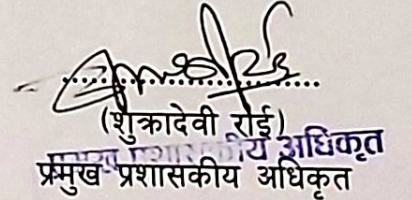 (शुक्रादेवी राई)
प्रमुख प्रशासकीय अधिकृत
प्रमुख प्रशासकीय अधिकृत